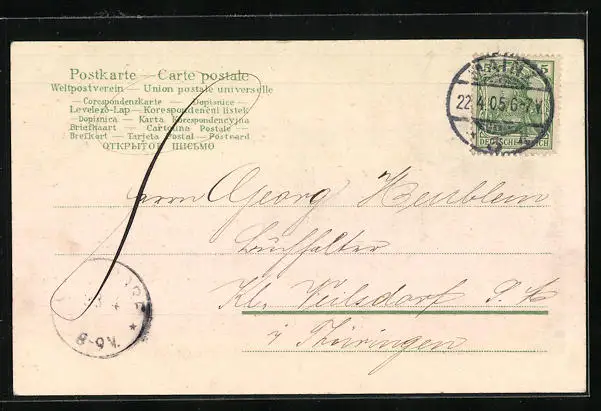 Postkarte — Carte postale
Weltpostverein — Union postale universelle
— CorespondenzKarte — Dopisnice —
Levelezö-Lap — Korespondenční listek
— Dopisnica — Karta Korespondencyjna
Briefkaart — Cartolina Postale —
Brefkort — Tarjeta Postal — Postcard
ОТКРЫТОЕ ПИСЬМО
5
22.4.05.6-7.V
DEUTSCHES REICH
Herrn Georg Heublein
Buchhalter
Kl.
i/Thüringen